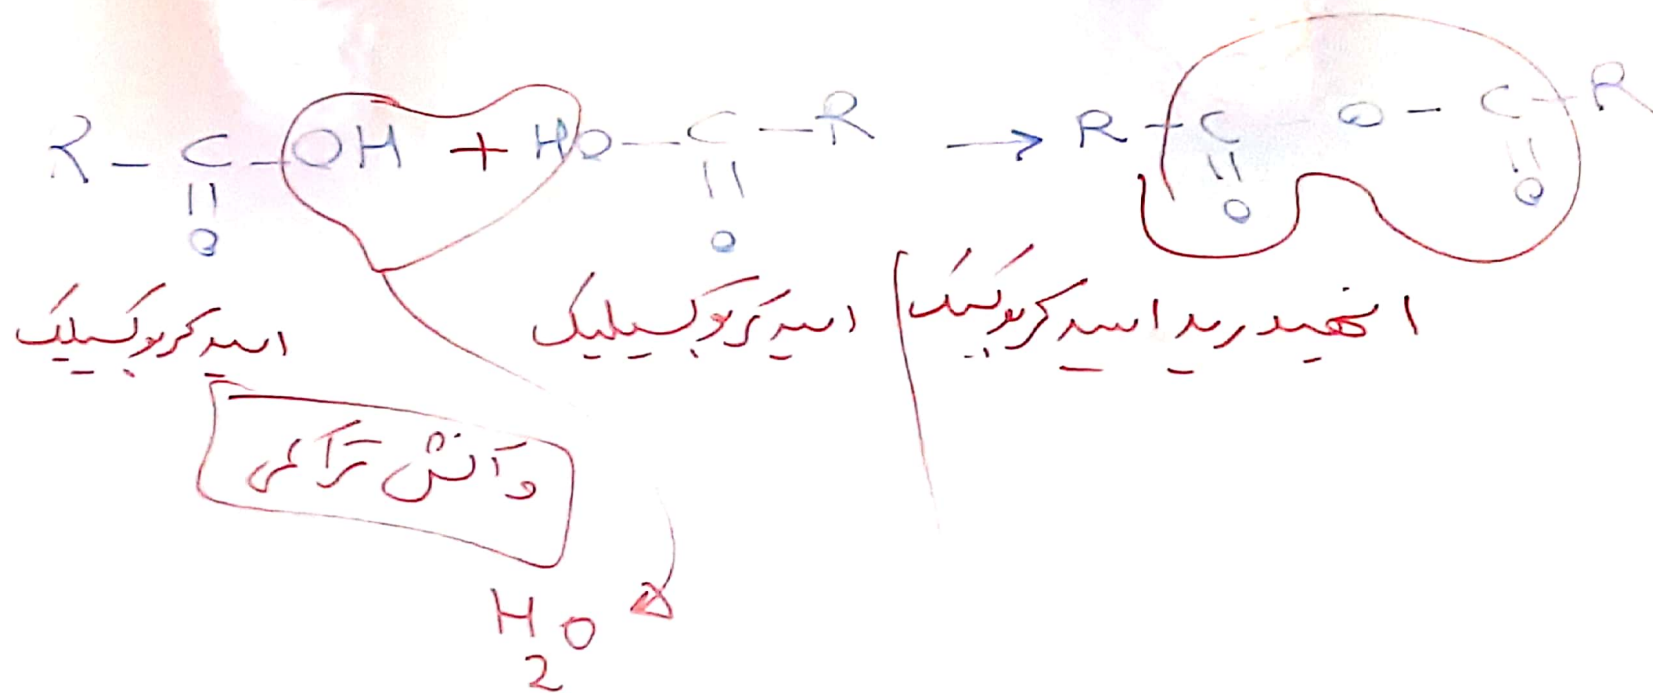 R - C - OH + HO - C - R → R - C - O - C - R
|| || || ||
O O O O
اسید کربوکسیلیک اسید کربوکسیلیک انهیدرید اسید کربوکسیلیک
واکنش تراکمی
H2O